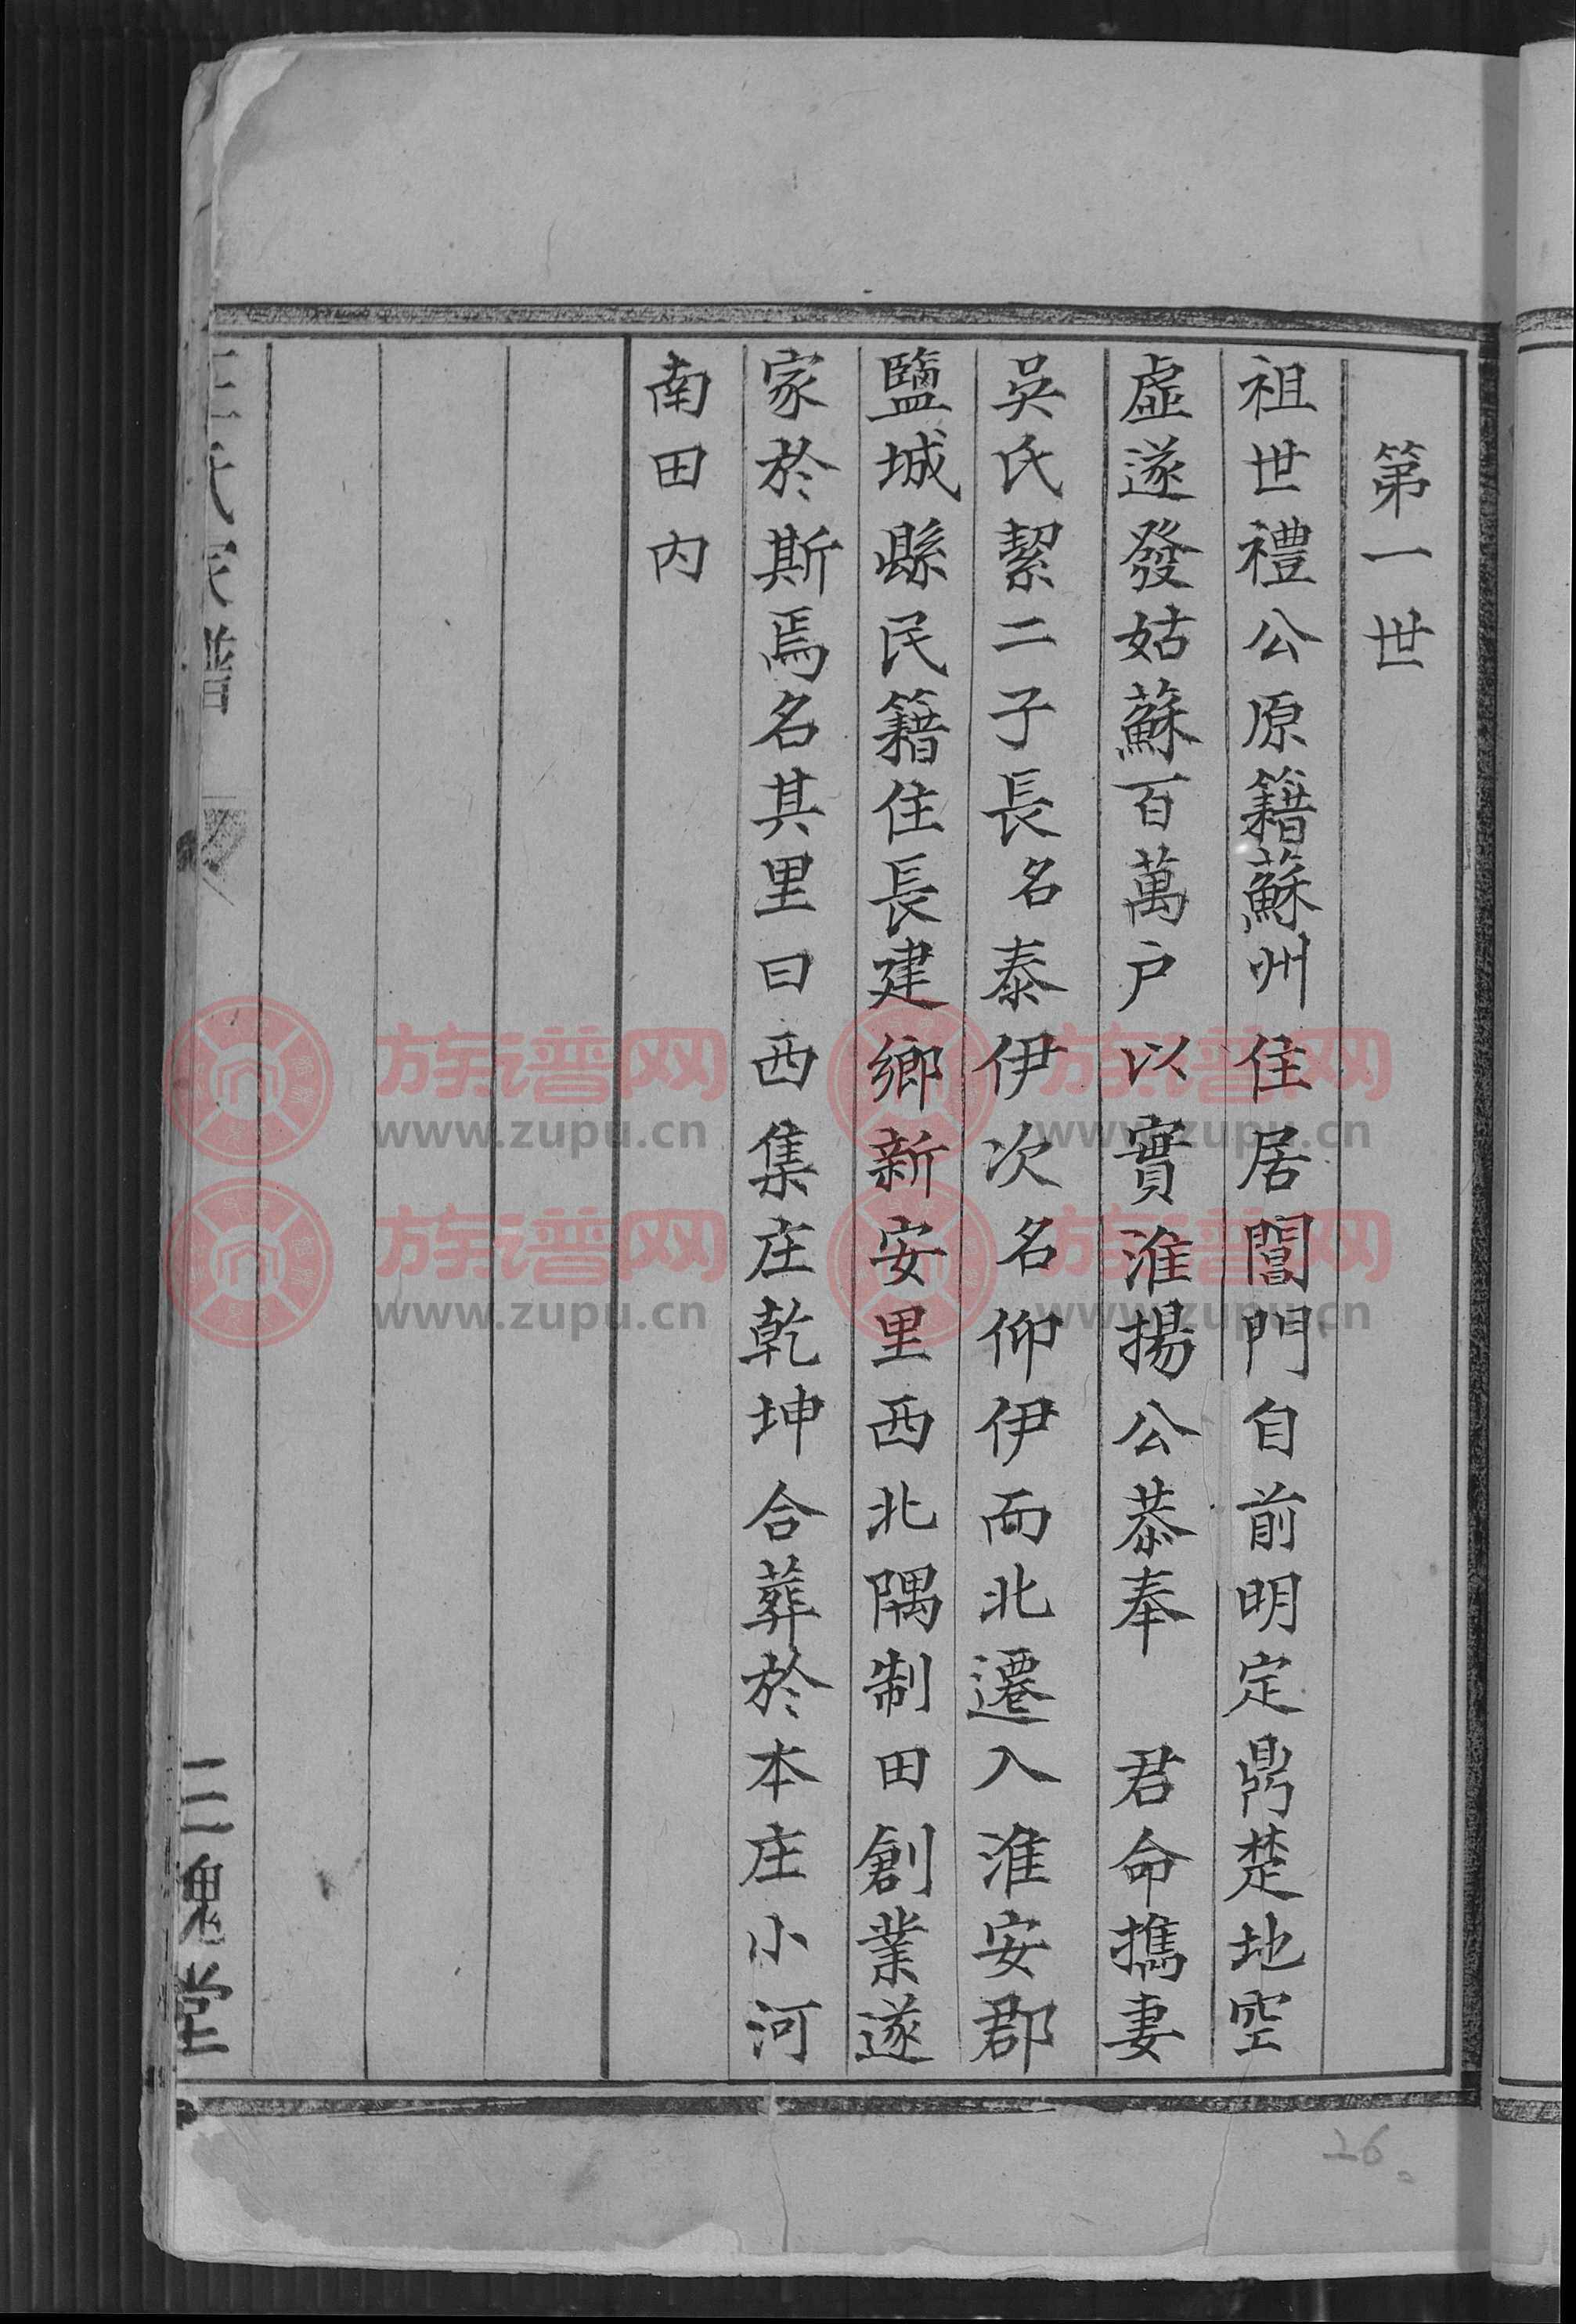 第一世
祖世禮公原籍蘇州住居閶門自前明定鼎楚地空
虛遂發姑蘇百萬户以實淮揚公恭奉　君命攜妻
吳氏絜二子長名泰伊次名仰伊而北遷入淮安郡
鹽城縣民籍住長建鄉新安里西北隅制田創業遂
家於斯焉名其里曰西集庄乾坤合葬於本庄小河
南田内
王氏家譜
三槐堂
26
族譜网
www.zupu.cn
族譜网
www.zupu.cn
族譜网
www.zupu.cn
族譜网
www.zupu.cn